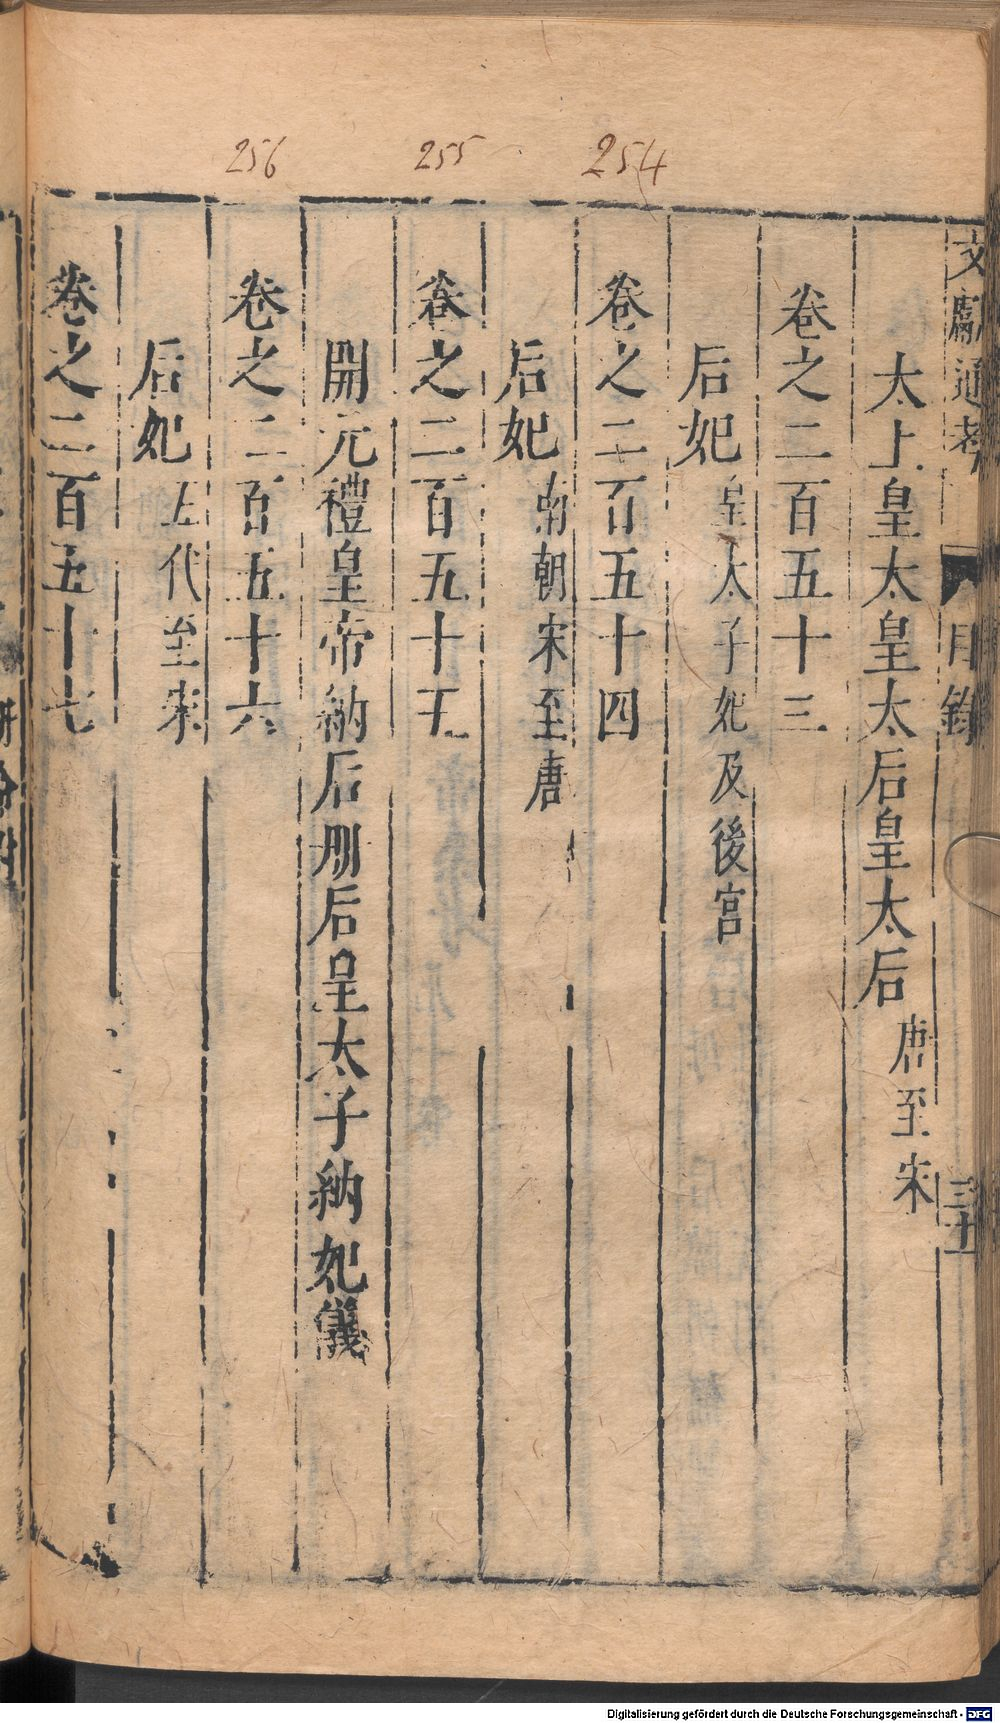 256 255 254
文獻通考 目錄 三十一
太上皇太皇太后皇太后 唐至宋
卷之二百五十三
后妃 皇太子妃及後宮
卷之二百五十四
后妃 南朝宋至唐
卷之二百五十五
開元禮皇帝納后冊后皇太子納妃儀
卷之二百五十六
后妃 五代至宋
卷之二百五十七
Digitalisierung gefördert durch die Deutsche Forschungsgemeinschaft - DFG